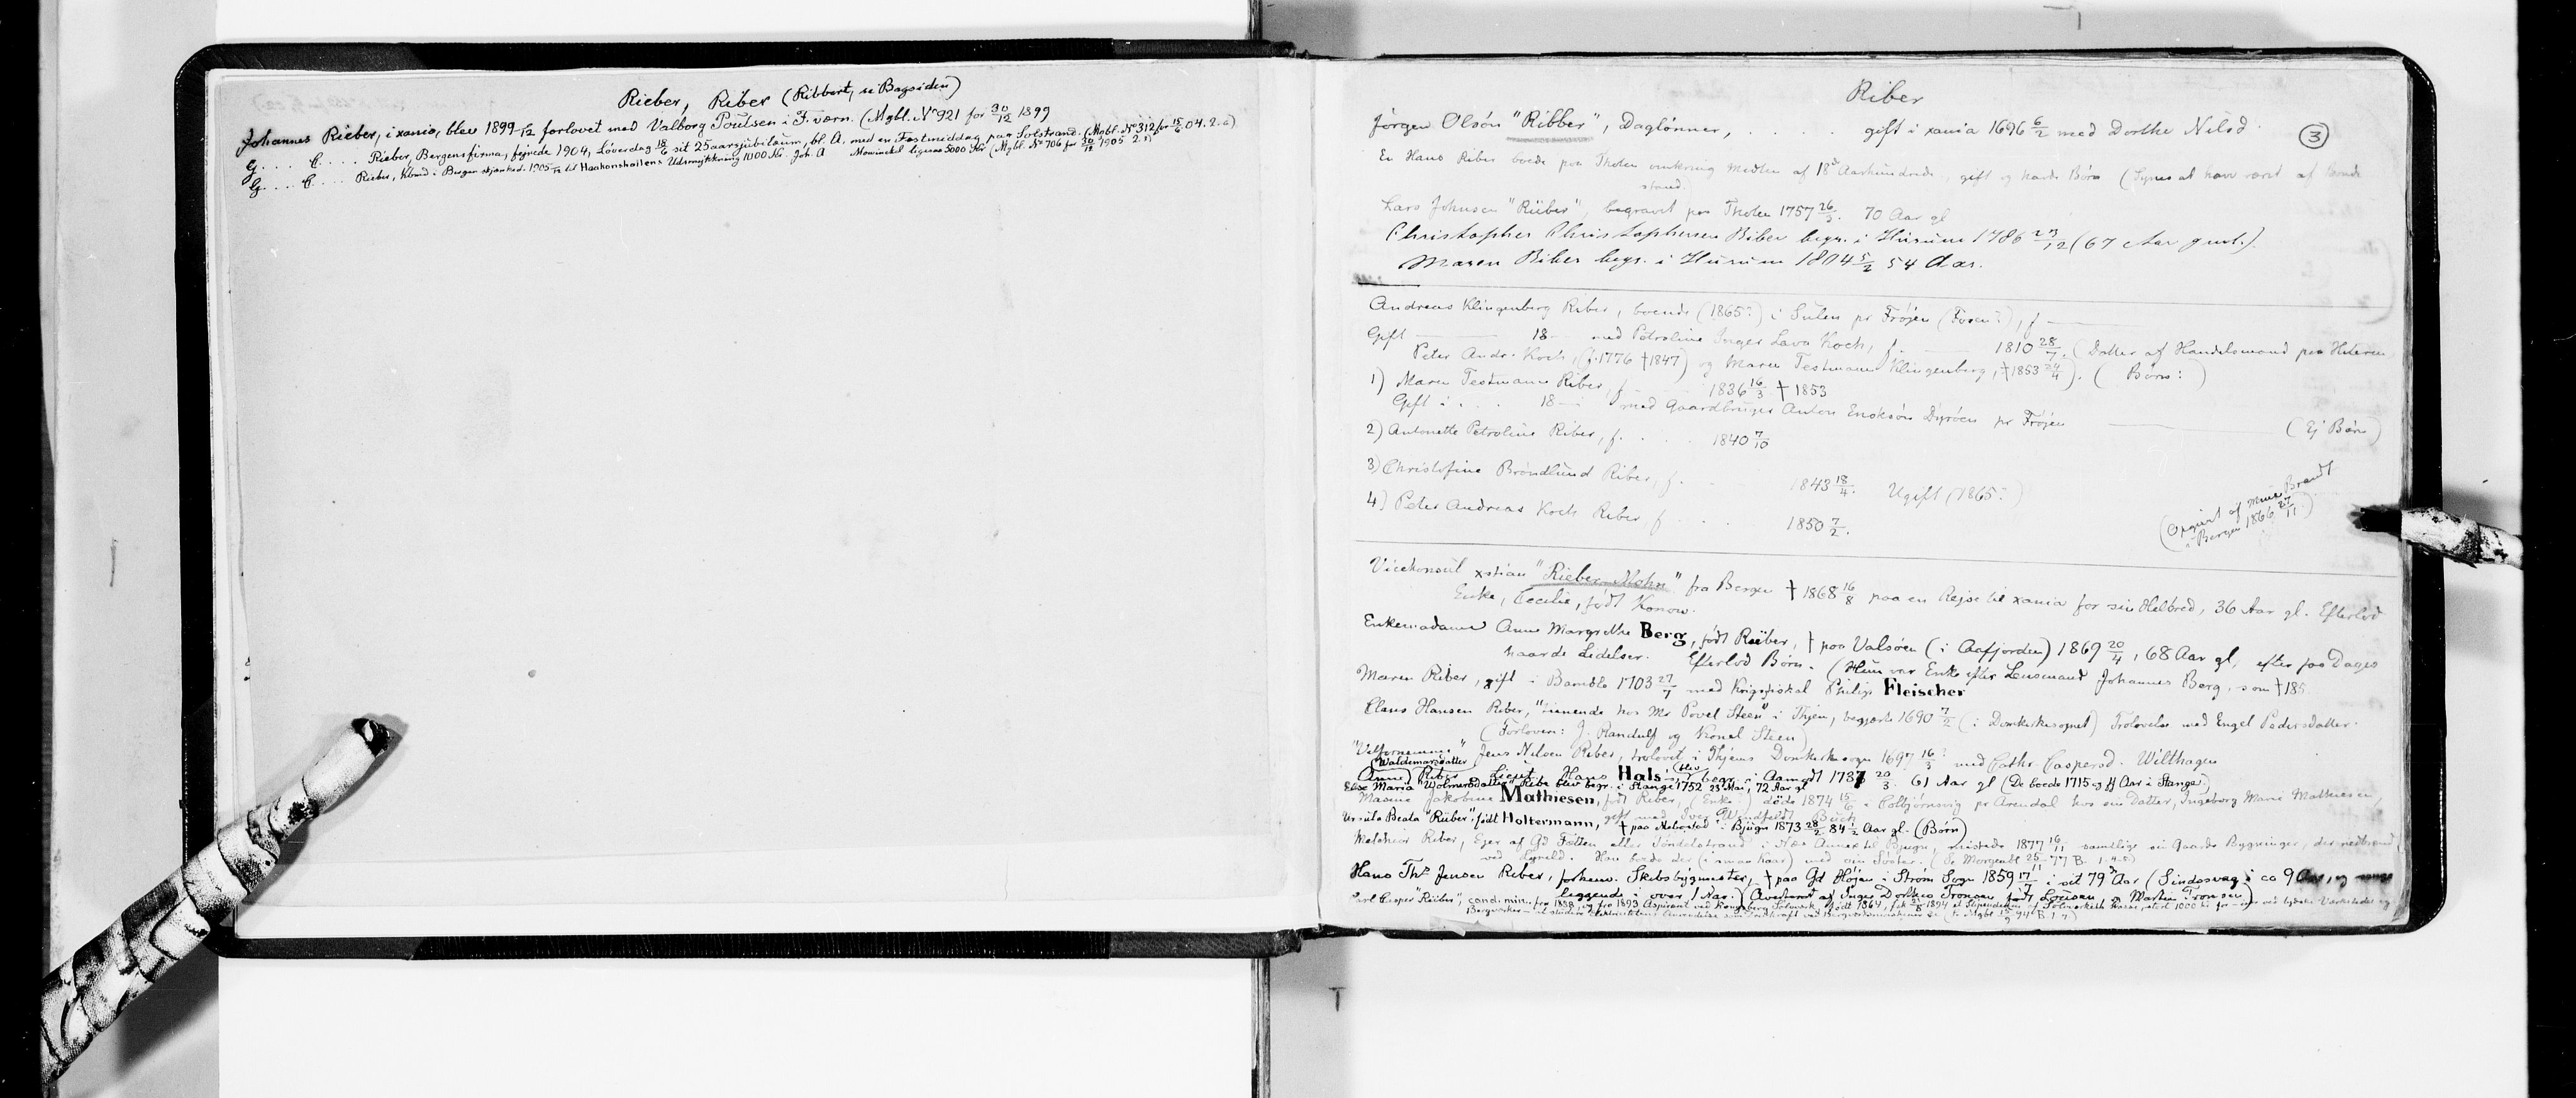 Rieber, Riber (Ribbert, se Bagsiden)
Johannes Rieber, i xania, blev 1899 /12 forlovet med Valborg Poulsen i F. værn. (Mgbl. No 921 for 30/12 1899
G. . . . C. . . . Rieber, Bergensfirma, fejrede 1904, Løverdag 18/6 sit 25aarsjubilæum, bl. A. med en Festmiddag paa Solstrand. (Mgbl. No 312 for 04. 2.
G. . . . C. . . . Rieber, Kbmd i Bergen skjænked. 1905 til Haakonshallens Udsmykkning 1000 Kr. Joh. A Mowinckel ligesaa 5000 Kr (Mgbl. No 706 for 1905 2.
Riber
3
Jørgen Olsøn "Ribber", Daglønner, . . . . . . gift i xania 1696 6/2 med Dorthe Nilsd.
En Hans Riber boede paa Tholen omkring Midten af 18de Aarhundrede, gift og havde Børn (Synes at have været af Bonde
stand.)
Lars Johnsen "Riiber", begravet paa Tholen 1757 26/3. 70 Aar gl
Christopher Christophersen Riber begr. i Husum 1786 23/12 (67 Aar gml.).
Maren Riber begr. i Husum 1804 5/2 54 Aar.
Andreas Klingenberg Riber, boende (1865?) i Sulen pr Frøjen (Fosen?), f
Gift 18 med Petroline Inger Lava Koch, f. 1810 28/7. (Datter af Handelsmand paa Hiteren
Peter Andr. Koch, (f. 1776 †1847) og Maren Testmann Klingenberg, †1853 24/4). (Børn:)
1) Maren Testmann Riber, f. 1836 16/3 †1853
Gift i . . . 18 med Gaardbruger Anton Enoksøn Dyrøen pr Frøjen (Ej Børn)
2) Antonette Petroline Riber, f. . . . . 1840 7/10
3) Christofine Brøndlund Riber, f. 1843 18/4. Ugift (1865?)
4) Peter Andreas Koch Riber, f . . . . 1850 7/2.
(Opgivet af Mina Brandt
i Bergen 1866 27/11)
Vicekonsul xstian "Rieber-Mohn" fra Bergen †1868 16/8 paa en Rejse til xania for sin Helbred, 36 Aar gl. Efterlod
Enke, Cecilie, født Konow.
Enkemadame Anne Margrethe Berg, født Riiber, † paa Valsøen (i Aafjorden) 1869 20/4, 68 Aar gl, efter faa Dages
haarde Lidelser. Efterlod Børn. (Hun var Enke efter Lensmand Johannes Berg, som †185
Maren Riber, gift i Bamble 1703 27/7 med Krigsfiskal Philip Fleischer
Claus Hansen Riber, "tienende hos Mr Povel Steen" i Thjem, begjærte 1690 7/2 (i Domkirkesognet) Trolovelse med Engel Pedersdatter.
(Forlovere: J. Randulf og Kønel Steen)
"Velfornemme" Jens Nilsen Riber, trolovet i Thjems Domkirkesogn 1697 16/3 med Cathr. Caspersd. Wilthagen
(Waldemarsdatter)
Anne Riber Hans Hals, blev begr. i Aamodt 1787 20/3. 61 Aar gl (De boede 1715 og ff Aar i Stange)
Else Maria "Wolmersdatter" Ribe blev begr. i Stange 1752 23 Mai, 72 Aar gl
Maxine Jakobine Mathiesen, født Riber, (Enke) døde 1874 15/6 i Colbjørnsvig pr Arendal hos sin Datter, Ingeborg Marie Mathiesen,
Ursula Beata "Riiber" født Holtermann, gift med Iver Windfeldt Buch † paa Mebostad i Bjugn 1873 28/2 84 1/2 Aar gl. (Børn)
Melchior Riber, Ejer af Gd Fætten eller i Næs Annex til Bjugn, mistede 1877 16/11 samtlige sin Gaards Bygninger, der nedbrænd
ved Lynild. Han boede der (i smaa Kaar) med sin Søster. (Se Morgenbl 25/11 77 B.
Hans Ths Jensen Riber, forhenv. Skibsbygmester, † paa Gd Højen i Strøm Sogn 1859 17/11 i sit 79de Aar (Sindssvag i ca 9 Aar, og
liggende i over 1 Aar.) (Averteret af Inger Dorthea Tronsen født Lorensen og Martin Tronsen)
Carl Casper "Riiber", cand. min. fra 1888 og fra 1893 Aspirant ved Kongsberg Sølvverk, født 1864, fik 1894 et Stipendium af Sølvverkets Kasse, stort 1000 Kr for